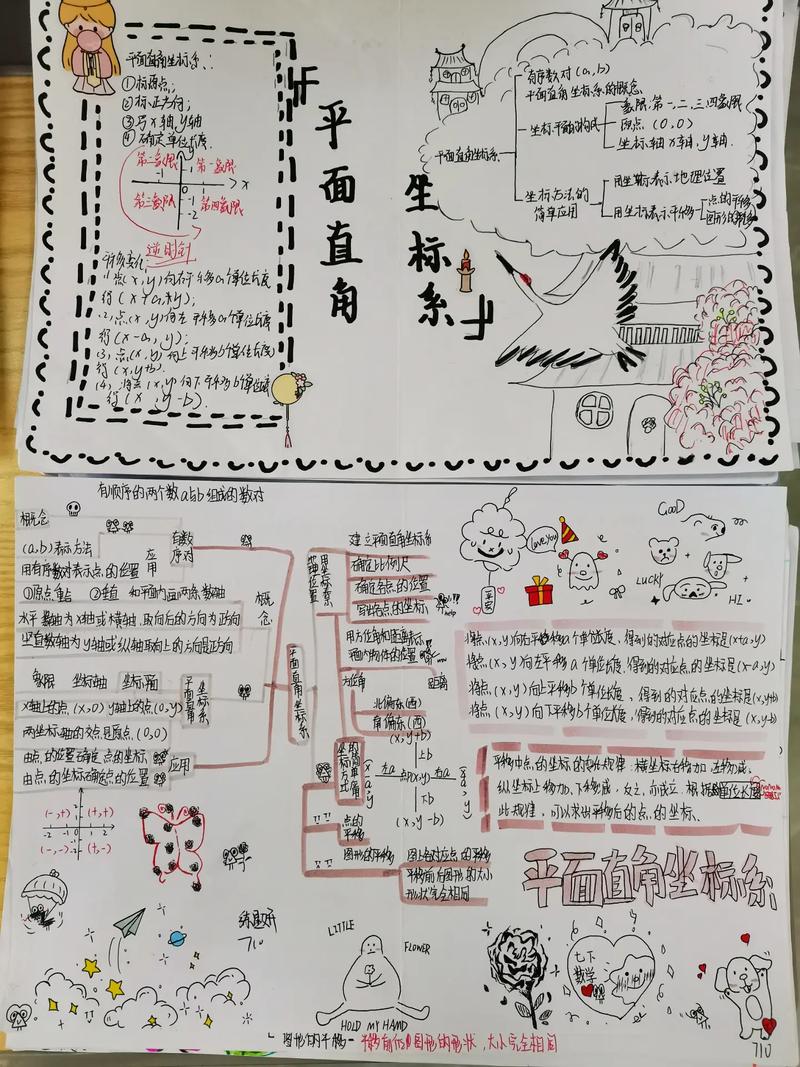 平面直角坐标系:
①标原点;
②标正方向;
③写x轴,y轴
④确定单位长度.
第二象限
第一象限
第三象限
第四象限
y
x
-1
1
-1
-2
逆时针
(x+a,
(2)点(x,y)向左平移a个单位长度
得(x-a,y);
(3)点(x,y)向上平移b个单位长度
得(x,y+b).
(x,y-b).
平面直角
坐标系
平面直角坐标系
有序数对(a,b)
平面直角坐标系的概念
坐标平面的构成
象限:第一、二、三、四象限
原点(0,0)
坐标轴x轴,y轴.
坐标方法的
简单应用
用坐标表示地理位置
用坐标表示平移
点的平移
图形的平移
有顺序的两个数a与b组成的数对
概念
(a,b)表示方法
用有序数对表示点的位置
应用
有序数对
①原点重合 ②垂直 和平面内画两条数轴
水平数轴为x轴或横轴,取向右的方向为正方向
竖直数轴为y轴或纵轴取向上的方向是正方向
概念
象限 坐标轴 坐标平面
x轴上的点(x,0) y轴上的点(0,y)
两坐标轴的交点是原点(0,0)
由点的位置确定点的坐标
由点的坐标确定点的位置
应用
平面直角坐标系
平面直角坐标系
(-,+)
(+,+)
(-,-)
(+,-)
-2 -1 0 1 2
建立平面直角坐标系
确定比例尺
确定各点的位置
写出各点的坐标
用方位角和距离表示
平面内物体的位置
方位角
距离
北偏东(西)
南偏东(西)
坐标方式的简单应用
(x,y+b)
上b
左a
点P(x,y)
右a
下b
(x,y-b)
点的平移
图形的平移
图上各对应点的平移
平移前后图形的大小
形状完全相同
love you
GOOD
LUCKY
HI
将点(x,y)向右平移a个单位长度,得到的对应点的坐标是(x+a,y)
将点(x,y)向左平移a个单位长度,得到的对应点的坐标是(x-a,y)
将点(x,y)向上平移b个单位长度,得到的对应点的坐标是(x,y+b)
将点(x,y)向下平移b个单位长度,得到的对应点的坐标是(x,y-b)
此规律,可以求出平移后的点的坐标.
平面直角坐标系
710
LITTLE
FLOWER
HOLD MY HAND
七下
数学
710
图形的平移-平移前后图形的形状,大小完全相同